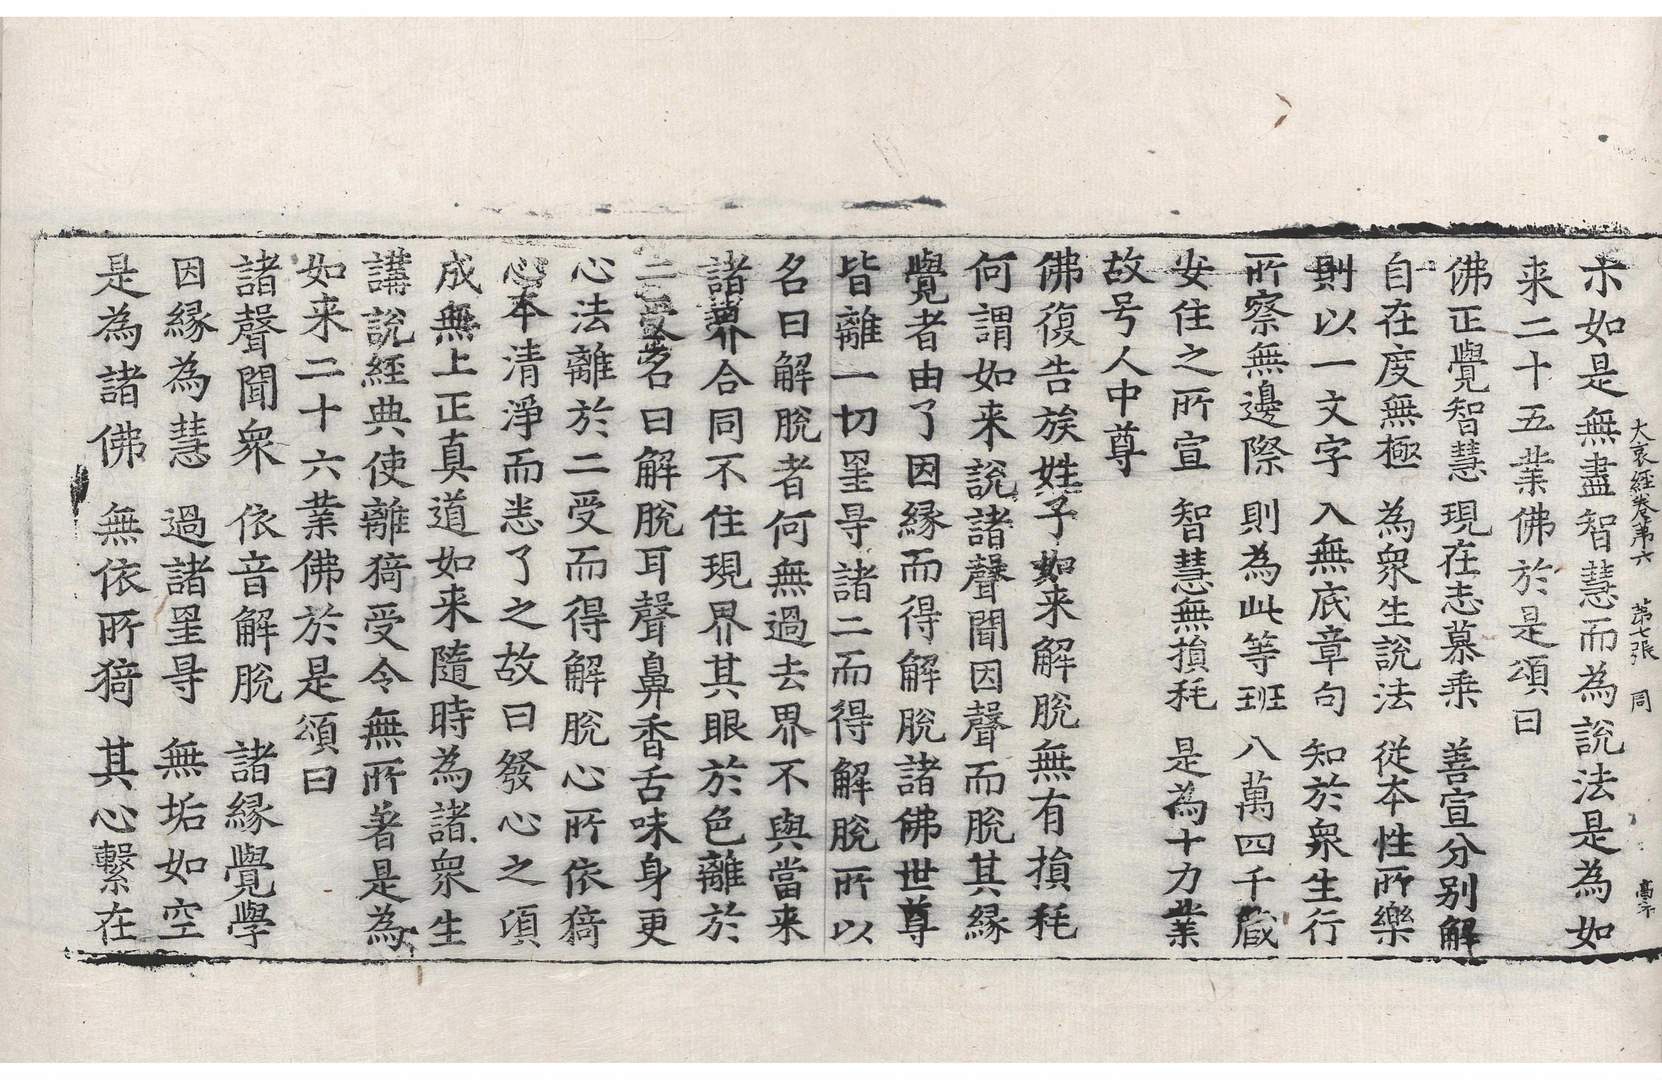 大哀經卷第六　第七張　同
示如是無盡智慧而為說法是為如
来二十五業佛於是頌曰
佛正覺智慧　現在志慕乘　善宣分別解
自在度無極　為衆生說法　從本性所樂
則以一文字　入無底章句　知於衆生行
所察無邊際　則為此等班　八萬四千藏
安住之所宣　智慧無損秏　是為十力業
故号人中尊
佛復告族姓子如来解脫無有損秏
何謂如来說諸聲聞因聲而脫其縁
覺者由了因縁而得解脫諸佛世尊
皆離一切罣导諸二而得解脫所以
名曰解脫者何無過去界不與當来
諸界合同不住現界其眼於色離於
二受名曰解脫耳聲鼻香舌味身更
心法離於二受而得解脫心所依猗
心本清淨而悉了之故曰發心之頃
成無上正真道如来隨時為諸衆生
講說經典使離猗受令無所著是為
如来二十六業佛於是頌曰
諸聲聞衆　依音解脫　諸縁覺學
因縁為慧　過諸罣导　無垢如空
是為諸佛　無依所猗　其心繫在